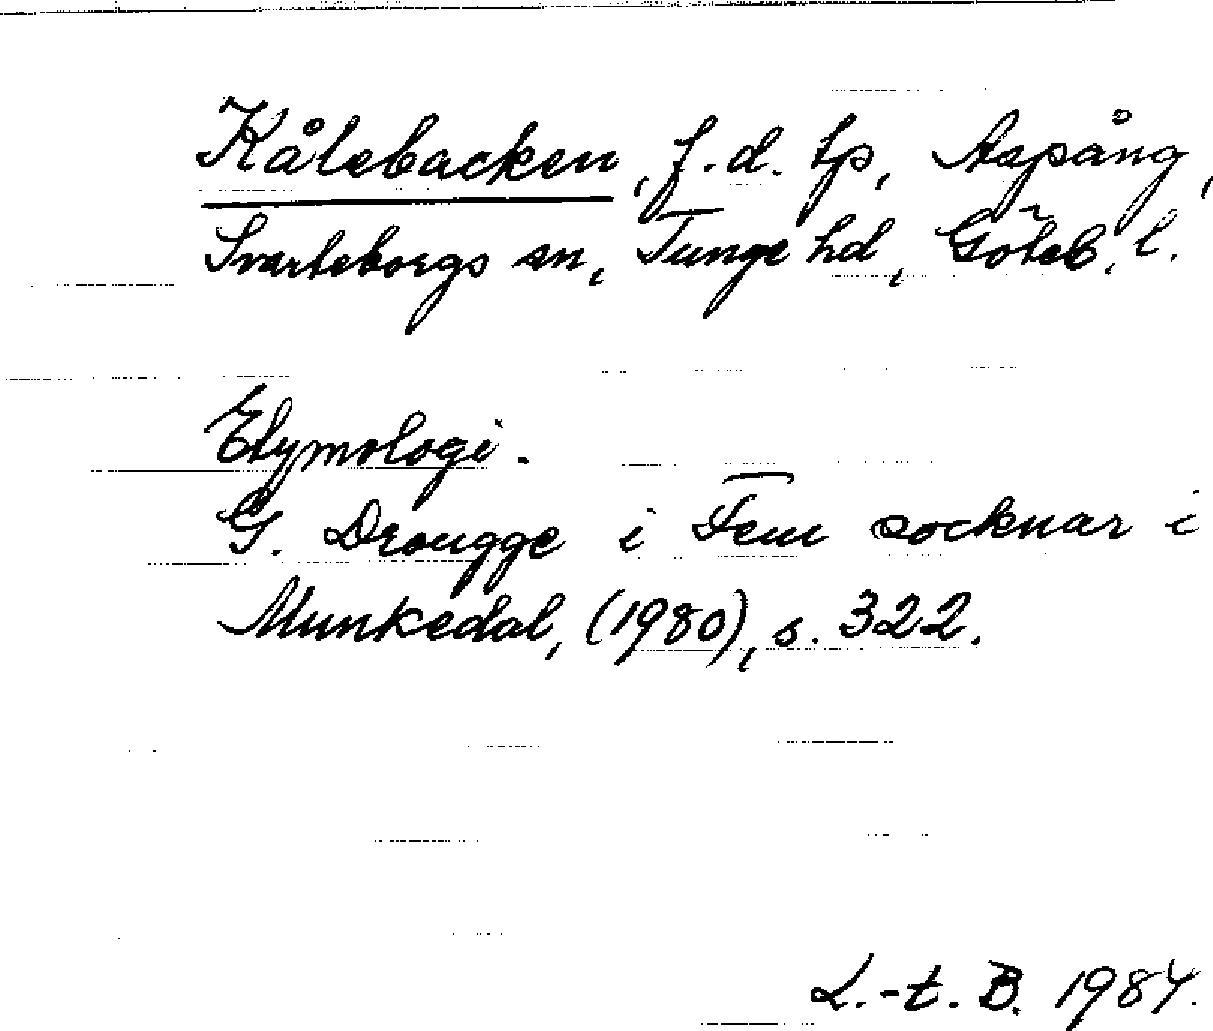 Kålebacken, f.d. tp, Aspång,
Svarteborgs sn, Tunge hd, Göteb. l.
Etymologi.
G. Drougge i Fem socknar i
Munkedal, (1980), s. 322.
L.-t. B. 1984.